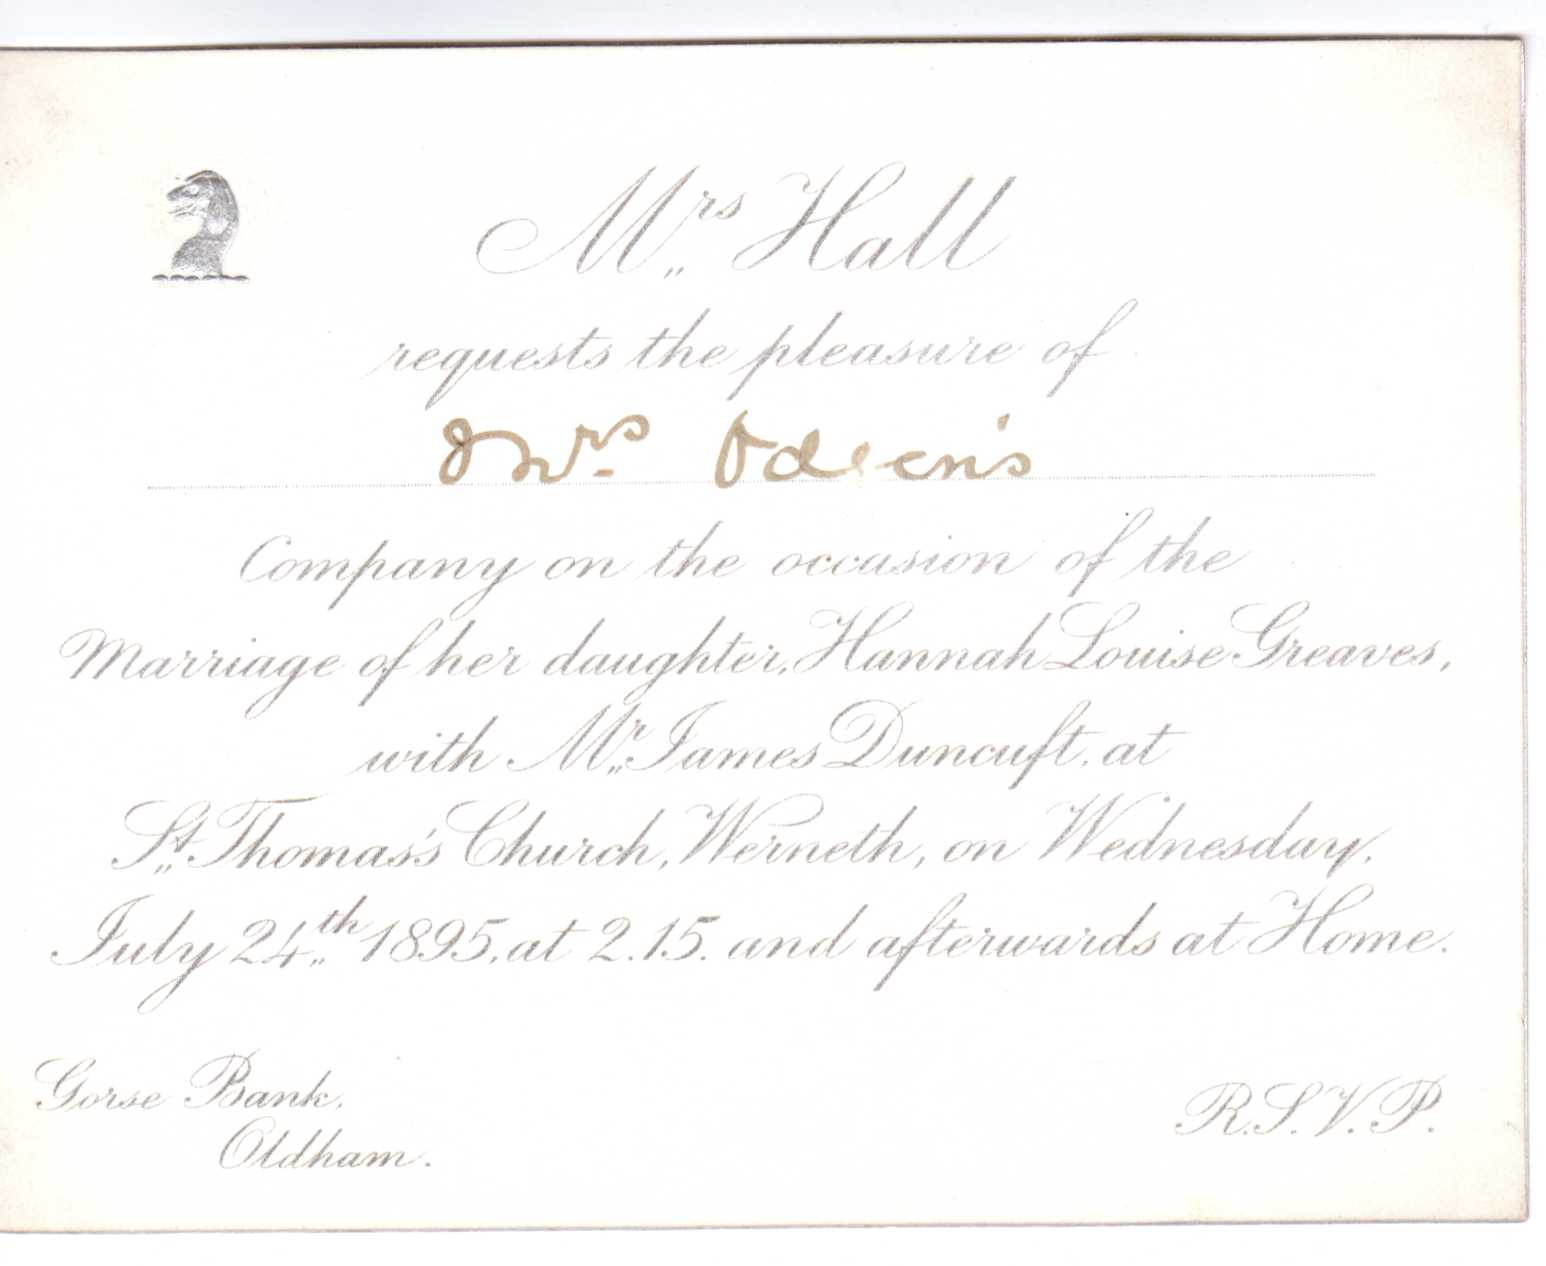 Mrs Hall
requests the pleasure of
Mrs.
Company on the occasion of the
Marriage of her daughter, Hannah Louise Greaves,
with Mr. James Duncuft, at
St. Thomas's Church, Werneth, on Wednesday,
July 24th 1895, at 2.15. and afterwards at Home.
Gorse Bank,
Oldham.
R.S.V.P.